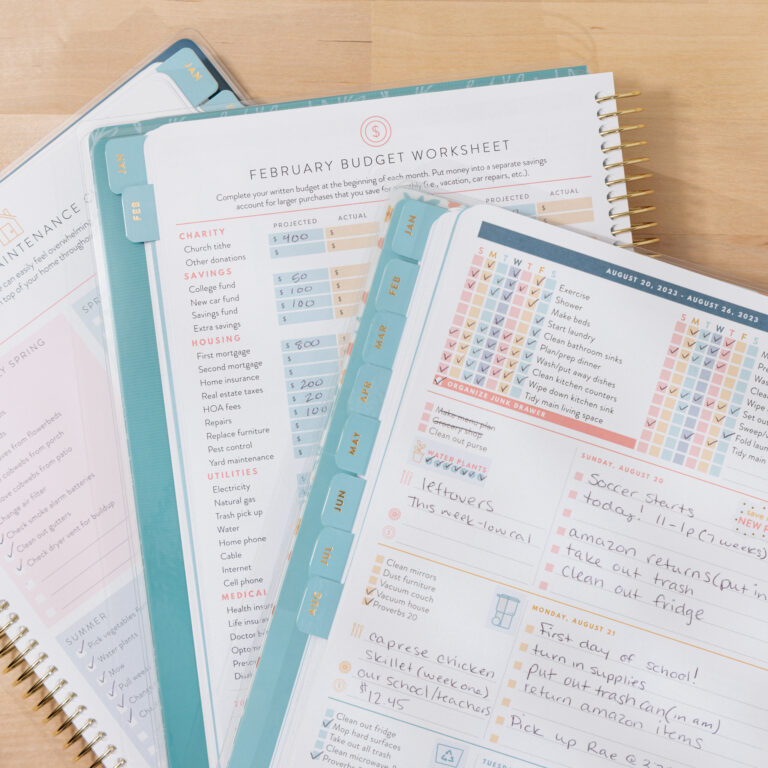 JAN
MAINTENANCE
can easily feel overwhelming
top of your home throughout
SPRING
from flowerbeds
cobwebs from porch
cobwebs from patio
Change air filter
Check smoke alarm batteries
Clean out gutters
Check dryer vent for buildup
SUMMER
Pick vegetables
Water plants
Mow
Pull weeds
JAN
FEB
FEBRUARY BUDGET WORKSHEET
Complete your written budget at the beginning of each month. Put money into a separate savings
account for larger purchases that you save for monthly (i.e., vacation, car repairs, etc.).
PROJECTED ACTUAL
PROJECTED ACTUAL
CHARITY
Church tithe $ 900 $
Other donations $ $
SAVINGS
College fund $ 50 $
New car fund $ 100 $
Savings fund $ 100 $
Extra savings $ $
HOUSING
First mortgage $ 800
Second mortgage $
Home insurance $
Real estate taxes $ 200
HOA fees $ 20
Repairs $ 100
Replace furniture $
Pest control $
Yard maintenance $
UTILITIES
Electricity
Natural gas
Trash pick up
Water
Home phone
Cable
Internet
Cell phone
MEDICAL
Health insur
Life insura
Doctor
Opto
Presc
JAN
FEB
MAR
APR
MAY
JUN
JUL
AUG
AUGUST 20, 2023 - AUGUST 26, 2023
S M T W T F S
Exercise
Shower
Make beds
Start laundry
Clean bathroom sinks
Plan/prep dinner
Wash/put away dishes
Clean kitchen counters
Wipe down kitchen sink
Tidy main living space
ORGANIZE JUNK DRAWER
S M T W T F S
Set out
Fold laun
Tidy main
Make menu plan
Grocery shop
Clean out purse
WATER PLANTS
leftovers
This week-low cal
SUNDAY, AUGUST 20
Soccer starts
today! 11-1p (7 weeks)
amazon returns (put in
take out trash
clean out fridge
NEW
Clean mirrors
Dust furniture
Vacuum couch
Vacuum house
Proverbs 20
caprese chicken
skillet (week one)
our school/teachers
$12.45
MONDAY, AUGUST 21
First day of school!
turn in supplies
put out trash can (in am)
return amazon items
Pick up Rae @
Clean out fridge
Mop hard surfaces
Take out all trash
Clean microwave
Proverbs
TUESDAY